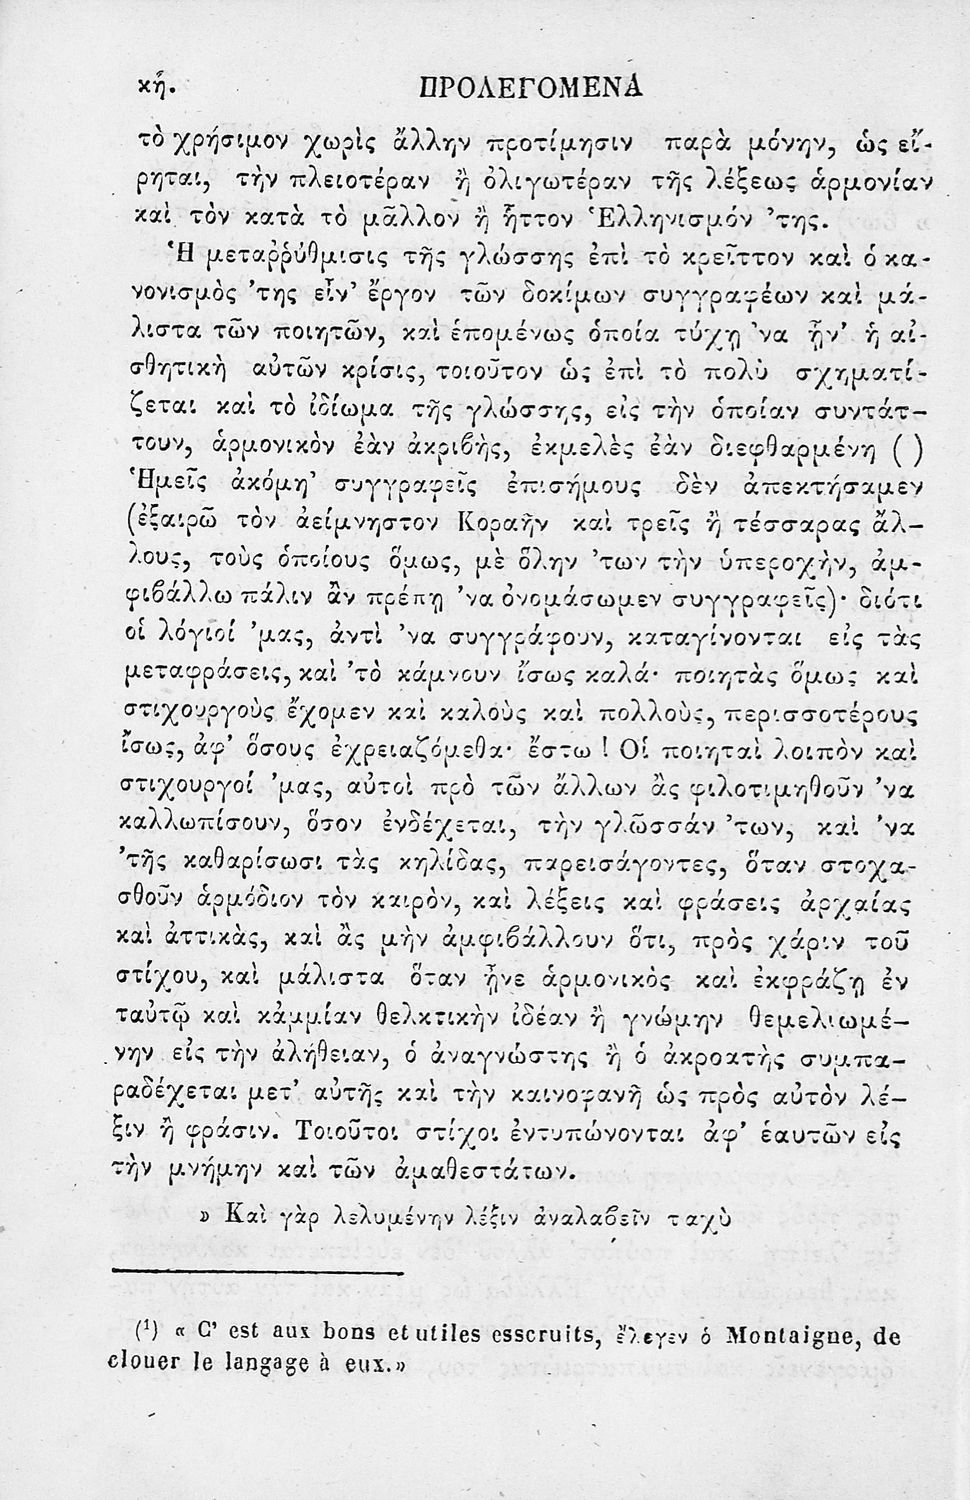 κή.
ΠΡΟΛΕΓΟΜΕΝΑ
τὸ χρήσιμον χωρὶς ἄλλην προτίμησιν παρὰ μόνην, ὡς εἴ-
ρηται, τὴν πλειοτέραν ἢ ὀλιγωτέραν τῆς λέξεως ἁρμονίαν
καὶ τὸν κατὰ τὸ μᾶλλον ἢ ἧττον Ἑλληνισμόν ’της.
Ἡ μεταῤῥύθμισις τῆς γλώσσης ἐπὶ τὸ κρεῖττον καὶ ὁ κα-
νονισμὸς ’της εἶν’ ἔργον τῶν δοκίμων συγγραφέων καὶ μά-
λιστα τῶν ποιητῶν, καὶ ἑπομένως ὁποία τύχῃ ’να ᾖν’ ἡ αἰ-
σθητικὴ αὐτῶν κρίσις, τοιοῦτον ὡς ἐπὶ τὸ πολὺ σχηματί-
ζεται καὶ τὸ ἰδίωμα τῆς γλώσσης, εἰς τὴν ὁποίαν συντάτ-
τουν, ἁρμονικὸν ἐὰν ἀκριβὴς, ἐκμελὲς ἐὰν διεφθαρμένη ( )
Ἡμεῖς ἀκόμη’ συγγραφεῖς ἐπισήμους δὲν ἀπεκτήσαμεν
(ἐξαιρῶ τὸν ἀείμνηστον Κοραῆν καὶ τρεῖς ἢ τέσσαρας ἄλ-
λους, τοὺς ὁποίους ὅμως, μὲ ὅλην ’των τὴν ὑπεροχὴν, ἀμ-
φιβάλλω πάλιν ἂν πρέπῃ ’να ὀνομάσωμεν συγγραφεῖς)· διότι
οἱ λόγιοί ’μας, ἀντὶ ’να συγγράφουν, καταγίνονται εἰς τὰς
μεταφράσεις, καὶ ’τὸ κάμνουν ἴσως καλά· ποιητὰς ὅμως καὶ
στιχουργοὺς ἔχομεν καὶ καλοὺς καὶ πολλοὺς, περισσοτέρους
ἴσως, ἀφ’ ὅσους ἐχρειαζόμεθα· ἔστω ! Οἱ ποιηταὶ λοιπὸν καὶ
στιχουργοί ’μας, αὐτοὶ πρὸ τῶν ἄλλων ἂς φιλοτιμηθοῦν ’να
καλλωπίσουν, ὅσον ἐνδέχεται, τὴν γλῶσσάν ’των, καὶ ’να
’τῆς καθαρίσωσι τὰς κηλίδας, παρεισάγοντες, ὅταν στοχα-
σθοῦν ἁρμόδιον τὸν καιρὸν, καὶ λέξεις καὶ φράσεις ἀρχαίας
καὶ ἀττικὰς, καὶ ἂς μὴν ἀμφιβάλλουν ὅτι, πρὸς χάριν τοῦ
στίχου, καὶ μάλιστα ὅταν ᾖνε ἁρμονικὸς καὶ ἐκφράζῃ ἐν
ταὐτῷ καὶ κᾀμμίαν θελκτικὴν ἰδέαν ἢ γνώμην θεμελιωμέ-
νην εἰς τὴν ἀλήθειαν, ὁ ἀναγνώστης ἢ ὁ ἀκροατὴς συμπα-
ραδέχεται μετ’ αὐτῆς καὶ τὴν καινοφανῆ ὡς πρὸς αὐτὸν λέ-
ξιν ἢ φράσιν. Τοιοῦτοι στίχοι ἐντυπώνονται ἀφ’ ἑαυτῶν εἰς
τὴν μνήμην καὶ τῶν ἀμαθεστάτων.
» Καὶ γὰρ λελυμένην λέξιν ἀναλαβεῖν ταχὺ
(¹) « C’ est aux bons et utiles esscruits, ἔλεγεν ὁ Montaigne, de
clouer le langage à eux.»